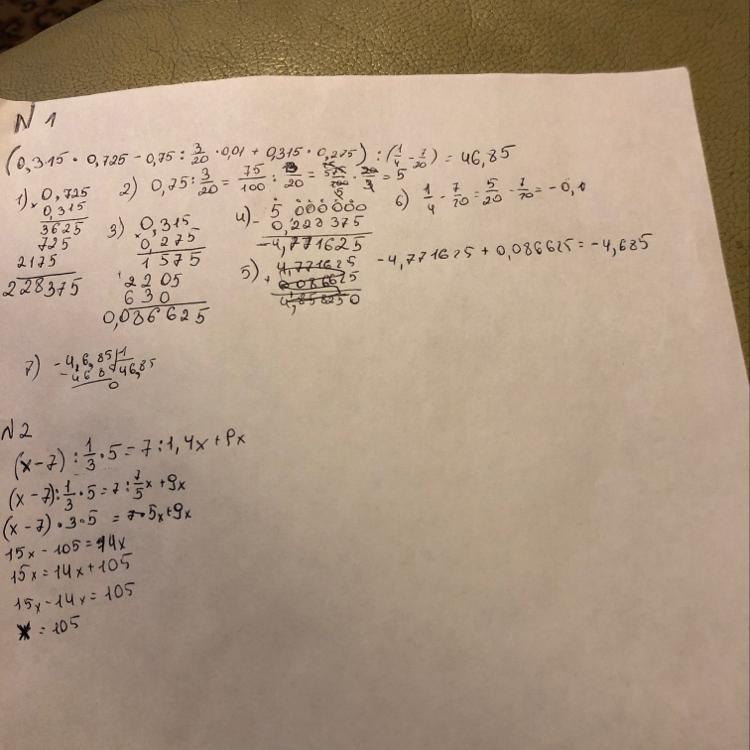 N 1
(0,315 · 0,725 - 0,75 : 3/20 · 0,01 + 0,315 · 0,275) : (1/4 - 7/20) = 46,85
1) × 0,725
0,315
3625
725
2175
228375
2) 0,75 : 3/20 = 75/100 : 3/20 = · 20/3 = 5
3) × 0,315
0,275
1575
2205
630
0,086625
4) - 5 000000
0,228375
-4,771625
5) + 4,771625
0,086625
4,858250
-4,771625 + 0,086625 = -4,685
6) 1/4 - 7/20 = 5/20 - 7/20 = -0,1
7) -4,6,85 | 1
-4685 46,85
0
N 2
(x-7) : 1/3 · 5 = 7 : 1,4x + 9x
(x-7) : 1/3 · 5 = 7 : 7/5 x + 9x
(x-7) · 3 · 5 = 5x + 9x
15x - 105 = 14x
15x = 14x + 105
15x - 14x = 105
x = 105